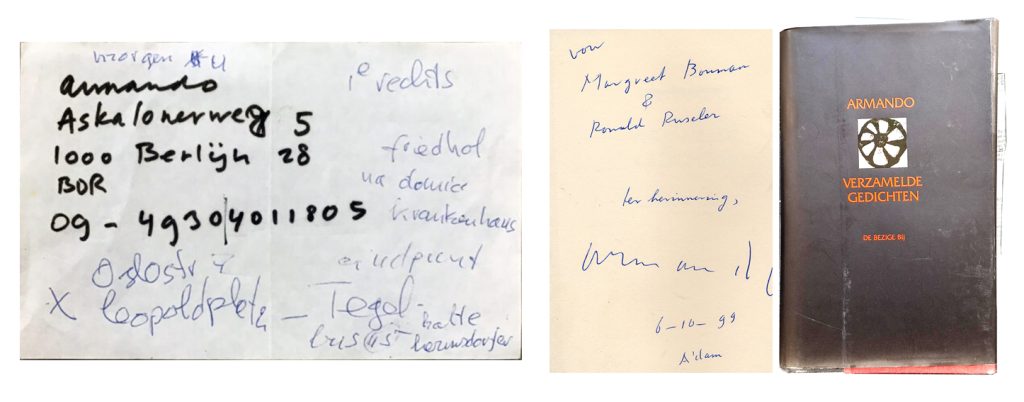 morgen
armando
1e rechts
Askalonerweg 5
1000 Berlijn 28
friedhof
BDR
na domica
krankenhaus
09 - 49304011805
eindpunt
Oslostr
X leopoldplatz — Tegel
halte
bus
hermsdorfer
voor
Margreet Bouman
&
Ronald Ruseler
ter herinnering,
Armando
6-10-99
A'dam
ARMANDO
VERZAMELDE
GEDICHTEN
DE BEZIGE BIJ